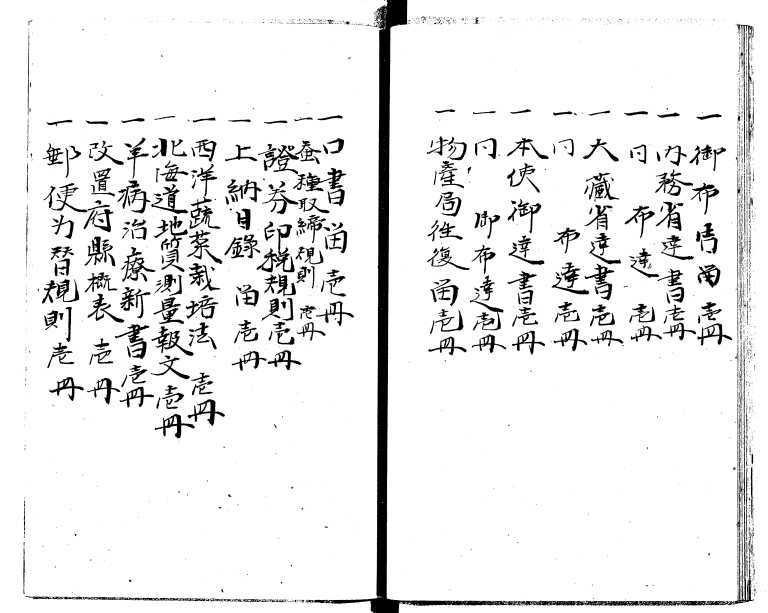 一御布告留壱冊
一内務省達書壱冊
一同布達壱冊
一大蔵省達書壱冊
一同布達壱冊
一本使御達書壱冊
一同御布達壱冊
一物産局往復留壱冊
一口書留壱冊
一蚕種取締規則壱冊
一證券印税規則壱冊
一上納目録留壱冊
一西洋蔬菜栽培法壱冊
一北海道地質測量報文壱冊
一羊病治療新書壱冊
一改置府縣概表壱冊
一郵便為替規則壱冊